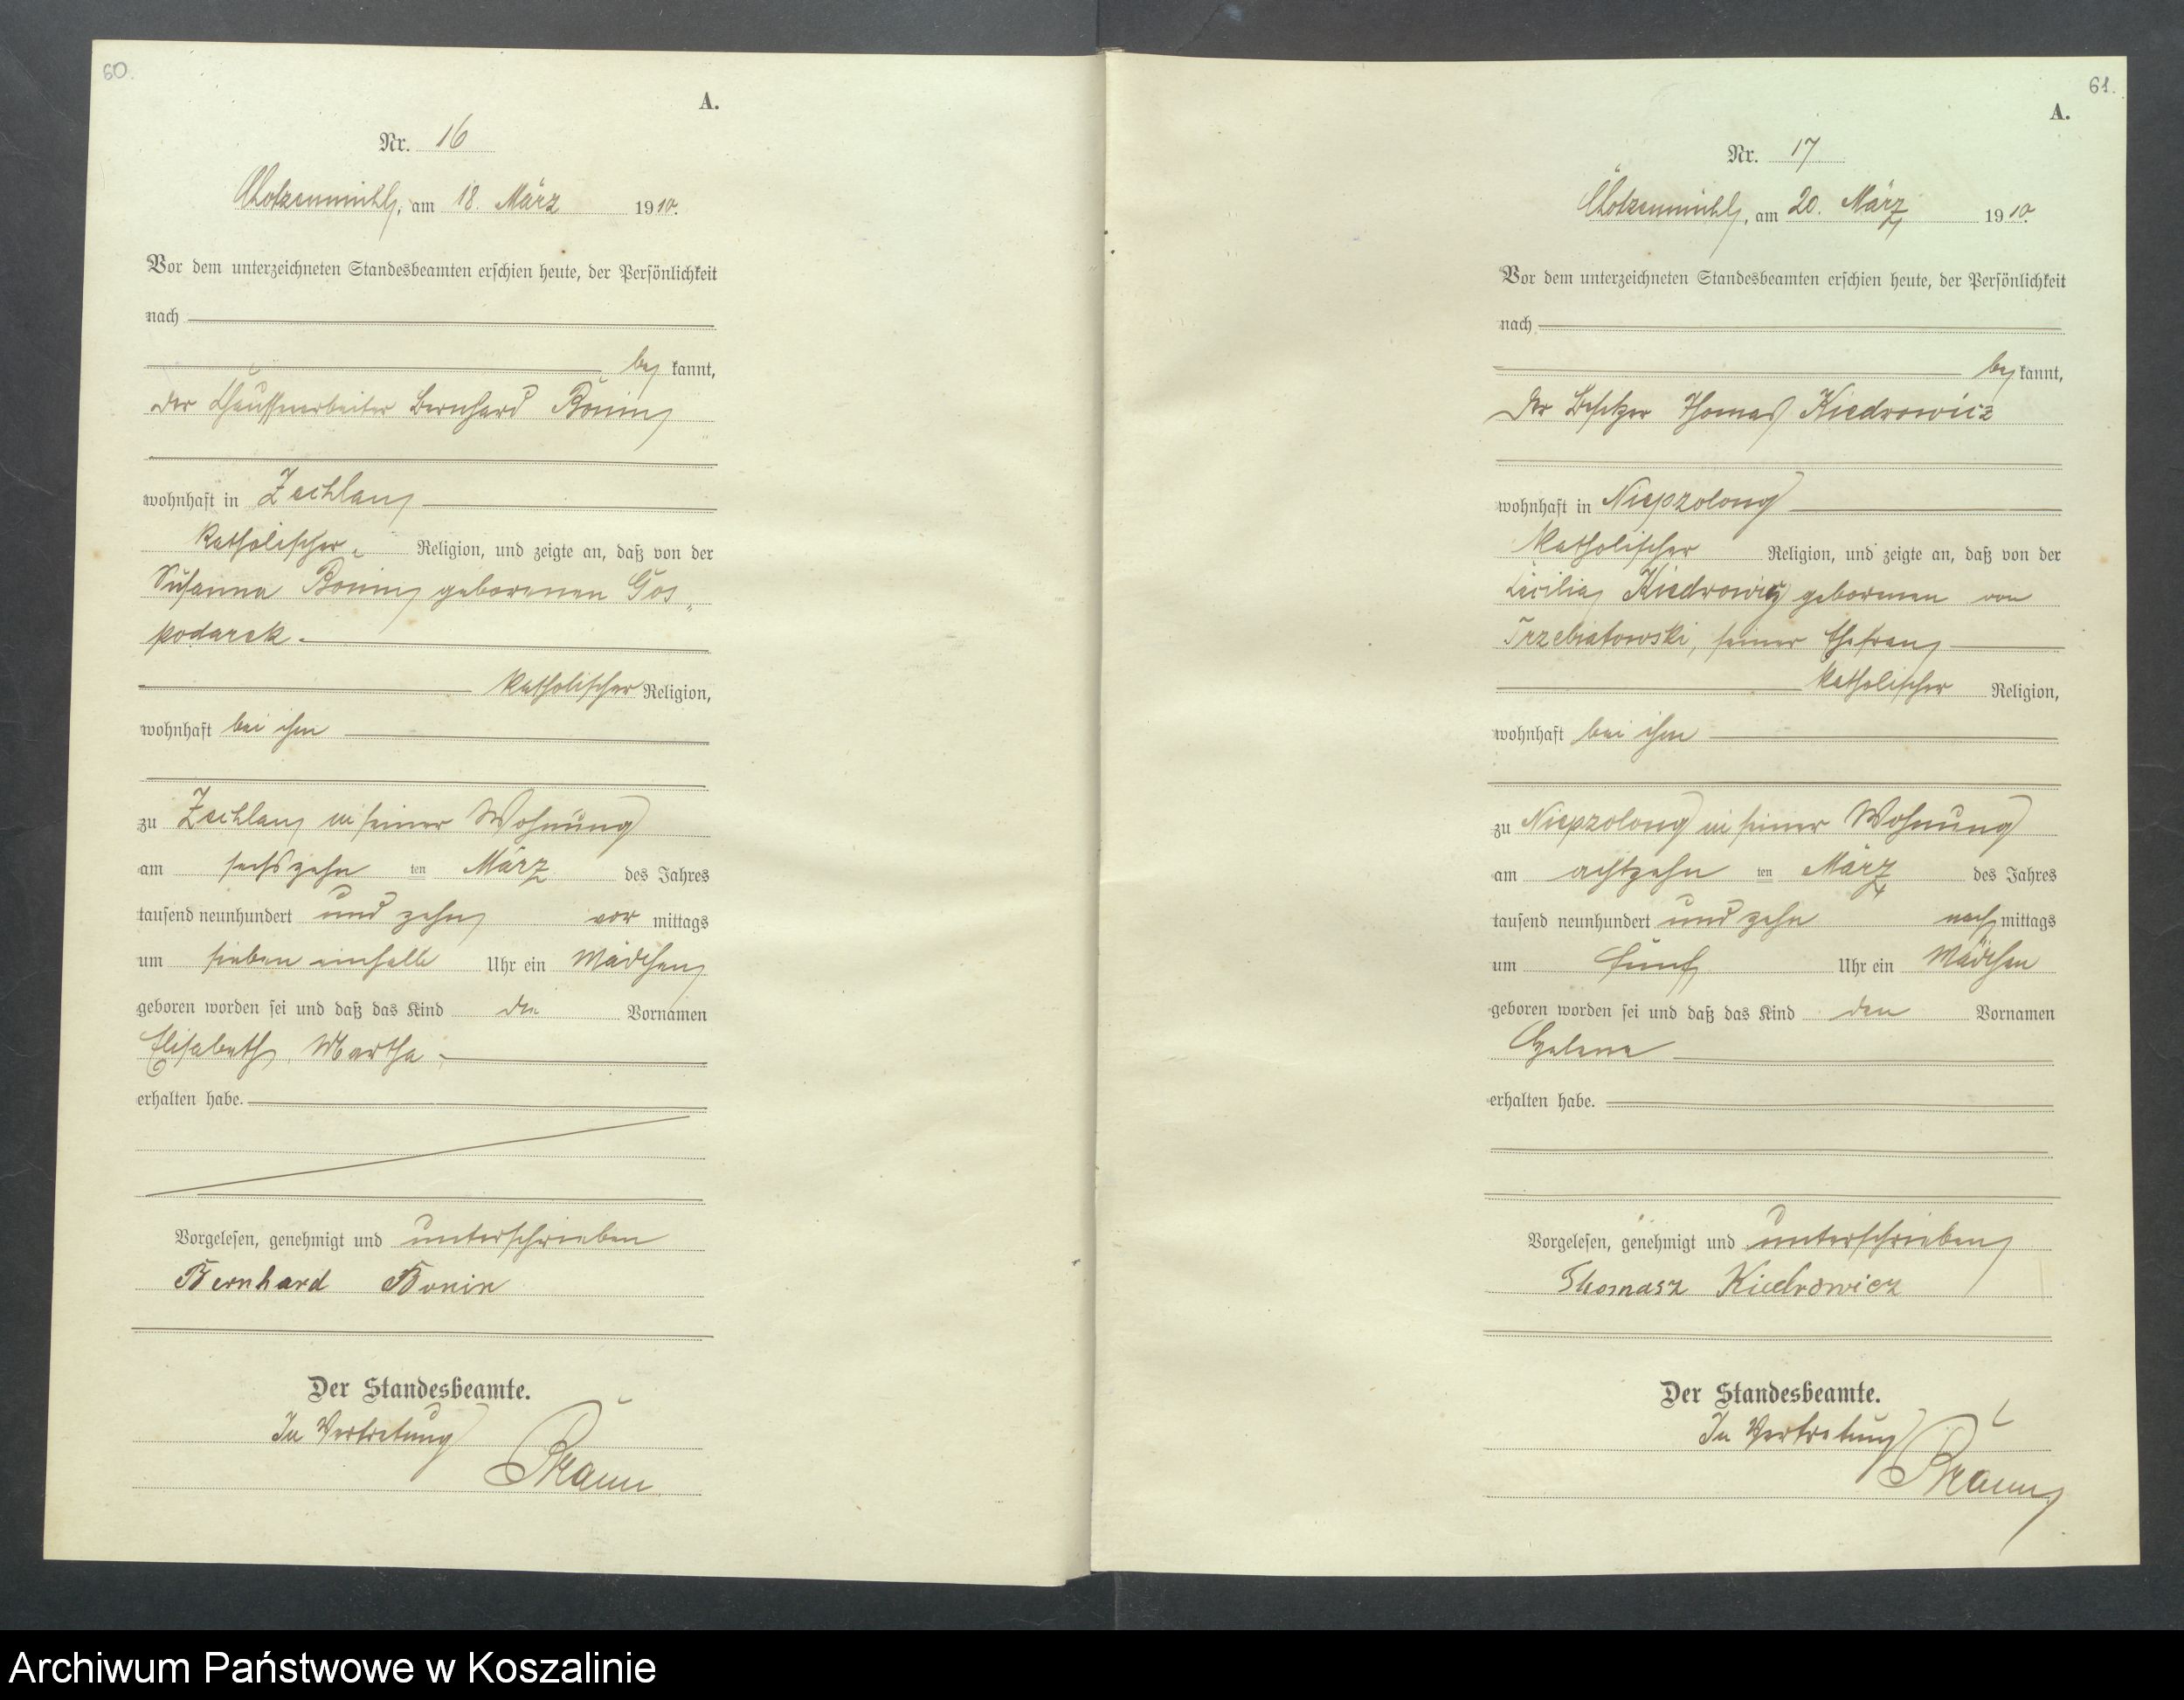 60.
A.
Nr. 16
Chotzenmühl, am 18. März 1910.
Vor dem unterzeichneten Standesbeamten erschien heute, der Persönlichkeit
nach
be kannt,
der Chausseearbeiter Bernhard Bonin
wohnhaft in Zechlau
katholischer Religion, und zeigte an, daß von der
Susanna Bonin geborenen Gos
podarek
katholischer Religion,
wohnhaft bei ihm
zu Zechlau in seiner Wohnung
am sechszehn ten März des Jahres
tausend neunhundert und zehn vor mittags
um sieben einhalb Uhr ein Mädchen
geboren worden sei und daß das Kind die Vornamen
Elisabeth, Martha
erhalten habe.
Vorgelesen, genehmigt und unterschrieben
Bernhard Bonin
Der Standesbeamte.
In Vertretung
61.
A.
Nr. 17
Chotzenmühl, am 20. März 1910.
Vor dem unterzeichneten Standesbeamten erschien heute, der Persönlichkeit
nach
be kannt,
der Besitzer Thomas Kiedrowicz
wohnhaft in Niepzolong
katholischer Religion, und zeigte an, daß von der
Cäcilia Kiedrowicz geborenen von
Trzebiatowski, seiner Ehefrau
katholischer Religion,
wohnhaft bei ihm
zu Niepzolong in seiner Wohnung
am achtzehn ten März des Jahres
tausend neunhundert und zehn nach mittags
um fünf Uhr ein Mädchen
geboren worden sei und daß das Kind den Vornamen
erhalten habe.
Vorgelesen, genehmigt und unterschrieben
Thomasz Kiedrowicz
Der Standesbeamte.
In Vertretung
Archiwum Państwowe w Koszalinie